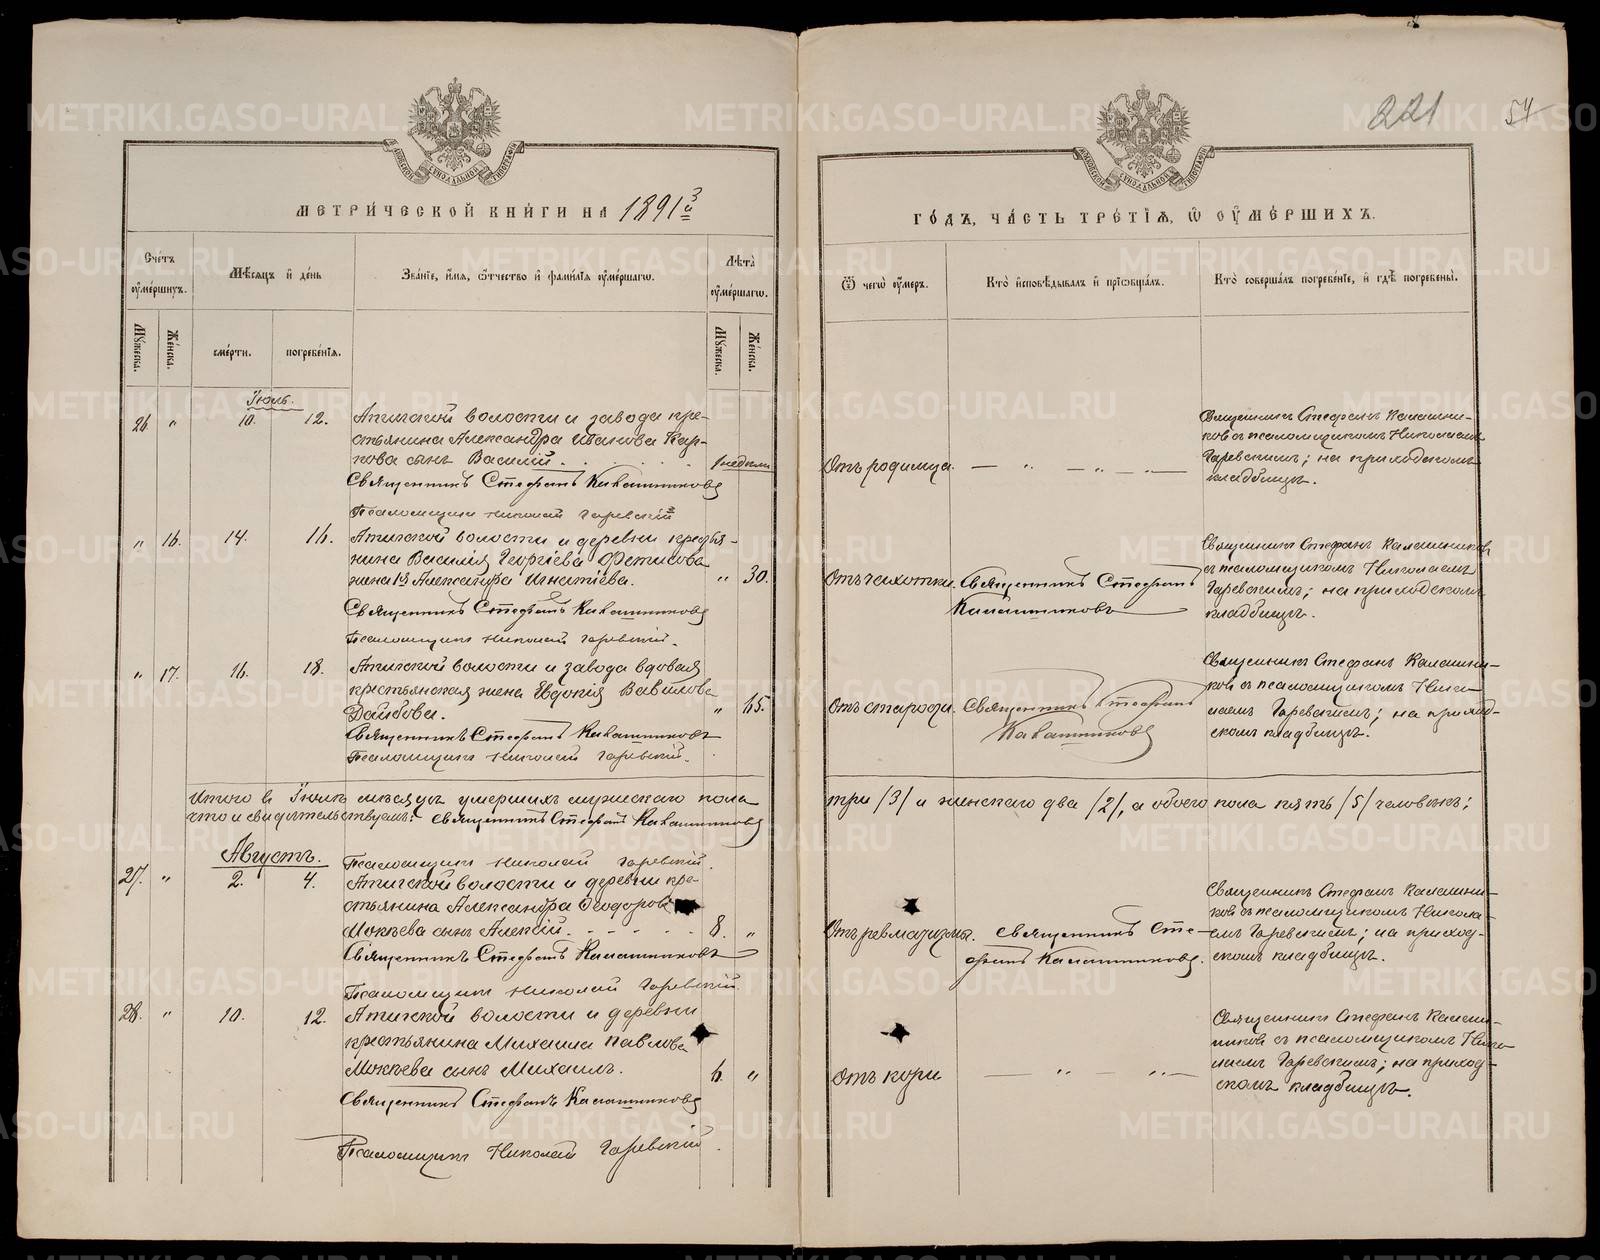 221
54
МЕТРИ́ЧЕСКОЙ КНИ́ГИ НА 1893й
ГО́ДЪ, ЧА́СТЬ ТРЕ́ТІѦ, Ѡ҆ ОУ҆МЕ́РШИХЪ.
Сче́тъ оу҆ме́ршихъ.
Мѣ́сяцъ и҆ де́нь
Зва́нїе, и҆́мѧ, ѻ҆́тчество и҆ фами́лїѧ оу҆ме́ршагѡ.
Лѣ́та оу҆ме́ршагѡ.
Ѿ чегѡ̀ оу҆́меръ.
Кто̀ и҆сповѣ́дывалъ и҆ прїѡбща́лъ.
Кто̀ соверша́лъ погребе́нїе, и҆ гдѣ̀ погребены̀.
Мꙋ́жеска.
Же́нска.
сме́рти.
погребе́нїѧ.
Мꙋ́жеска.
Же́нска.
Іюль.
26 " 10. 12. Атигской волости и завода кре-
стьянина Александра Иванова Кар-
пова сынъ Василій. 1 недели
Священникъ Стефанъ Калашниковъ
Псаломщикъ Николай Гаревскій
Отъ родимца. — " — " — " —
Священникъ Стефанъ Калашни-
ковъ съ псаломщикомъ Николаемъ
Гаревскимъ; на приходскомъ
кладбищѣ.
" 16. 14. 16. Атигской волости и деревни кресть-
янина Василія Георгіева Фетисова
жена Александра Игнатіева. " 30.
Священникъ Стефанъ Калашниковъ
Псаломщикъ Николай Гаревскій.
Отъ чахотки. Священникъ Стефанъ
Калашниковъ
Священникъ Стефанъ Калашниковъ
съ псаломщикомъ Николаемъ
Гаревскимъ; на приходскомъ
кладбищѣ.
" 17. 16. 18. Атигской волости и завода вдовая
крестьянская жена Евдокія Вавилова
" 65.
Священникъ Стефанъ Калашниковъ
Псаломщикъ Николай Гаревскій.
Отъ старости. Священникъ Стефанъ
Калашниковъ
Священникъ Стефанъ Калашни-
ковъ съ псаломщикомъ Нико-
лаемъ Гаревскимъ; на приход-
скомъ кладбищѣ.
Итого въ Іюлѣ мѣсяцѣ умершихъ мужескаго пола три /3/ и женскаго два /2/, а обоего пола пять /5/ человѣкъ;
что и свидѣтельствуемъ: Священникъ Стефанъ Калашниковъ
Псаломщикъ Николай Гаревскій.
Августъ.
27. " 2. 4. Атигской волости и деревни кре-
стьянина Александра Ѳеодорова
Мокѣева сынъ Алексій. 8. "
Священникъ Стефанъ Калашниковъ
Псаломщикъ Николай Гаревскій.
Отъ ревматизма. Священникъ Сте-
фанъ Калашниковъ.
Священникъ Стефанъ Калашни-
ковъ съ псаломщикомъ Никола-
емъ Гаревскимъ; на приход-
скомъ кладбищѣ.
28. " 10. 12. Атигской волости и деревни
крестьянина Михаила Павлова
Мокѣева сынъ Михаилъ. 6. "
Священникъ Стефанъ Калашниковъ
Псаломщикъ Николай Гаревскій.
Отъ кори — " — " —
Священникъ Стефанъ Калаш-
никовъ съ псаломщикомъ Нико-
лаемъ Гаревскимъ; на приход-
скомъ кладбищѣ.
METRIKI.GASO-URAL.RU